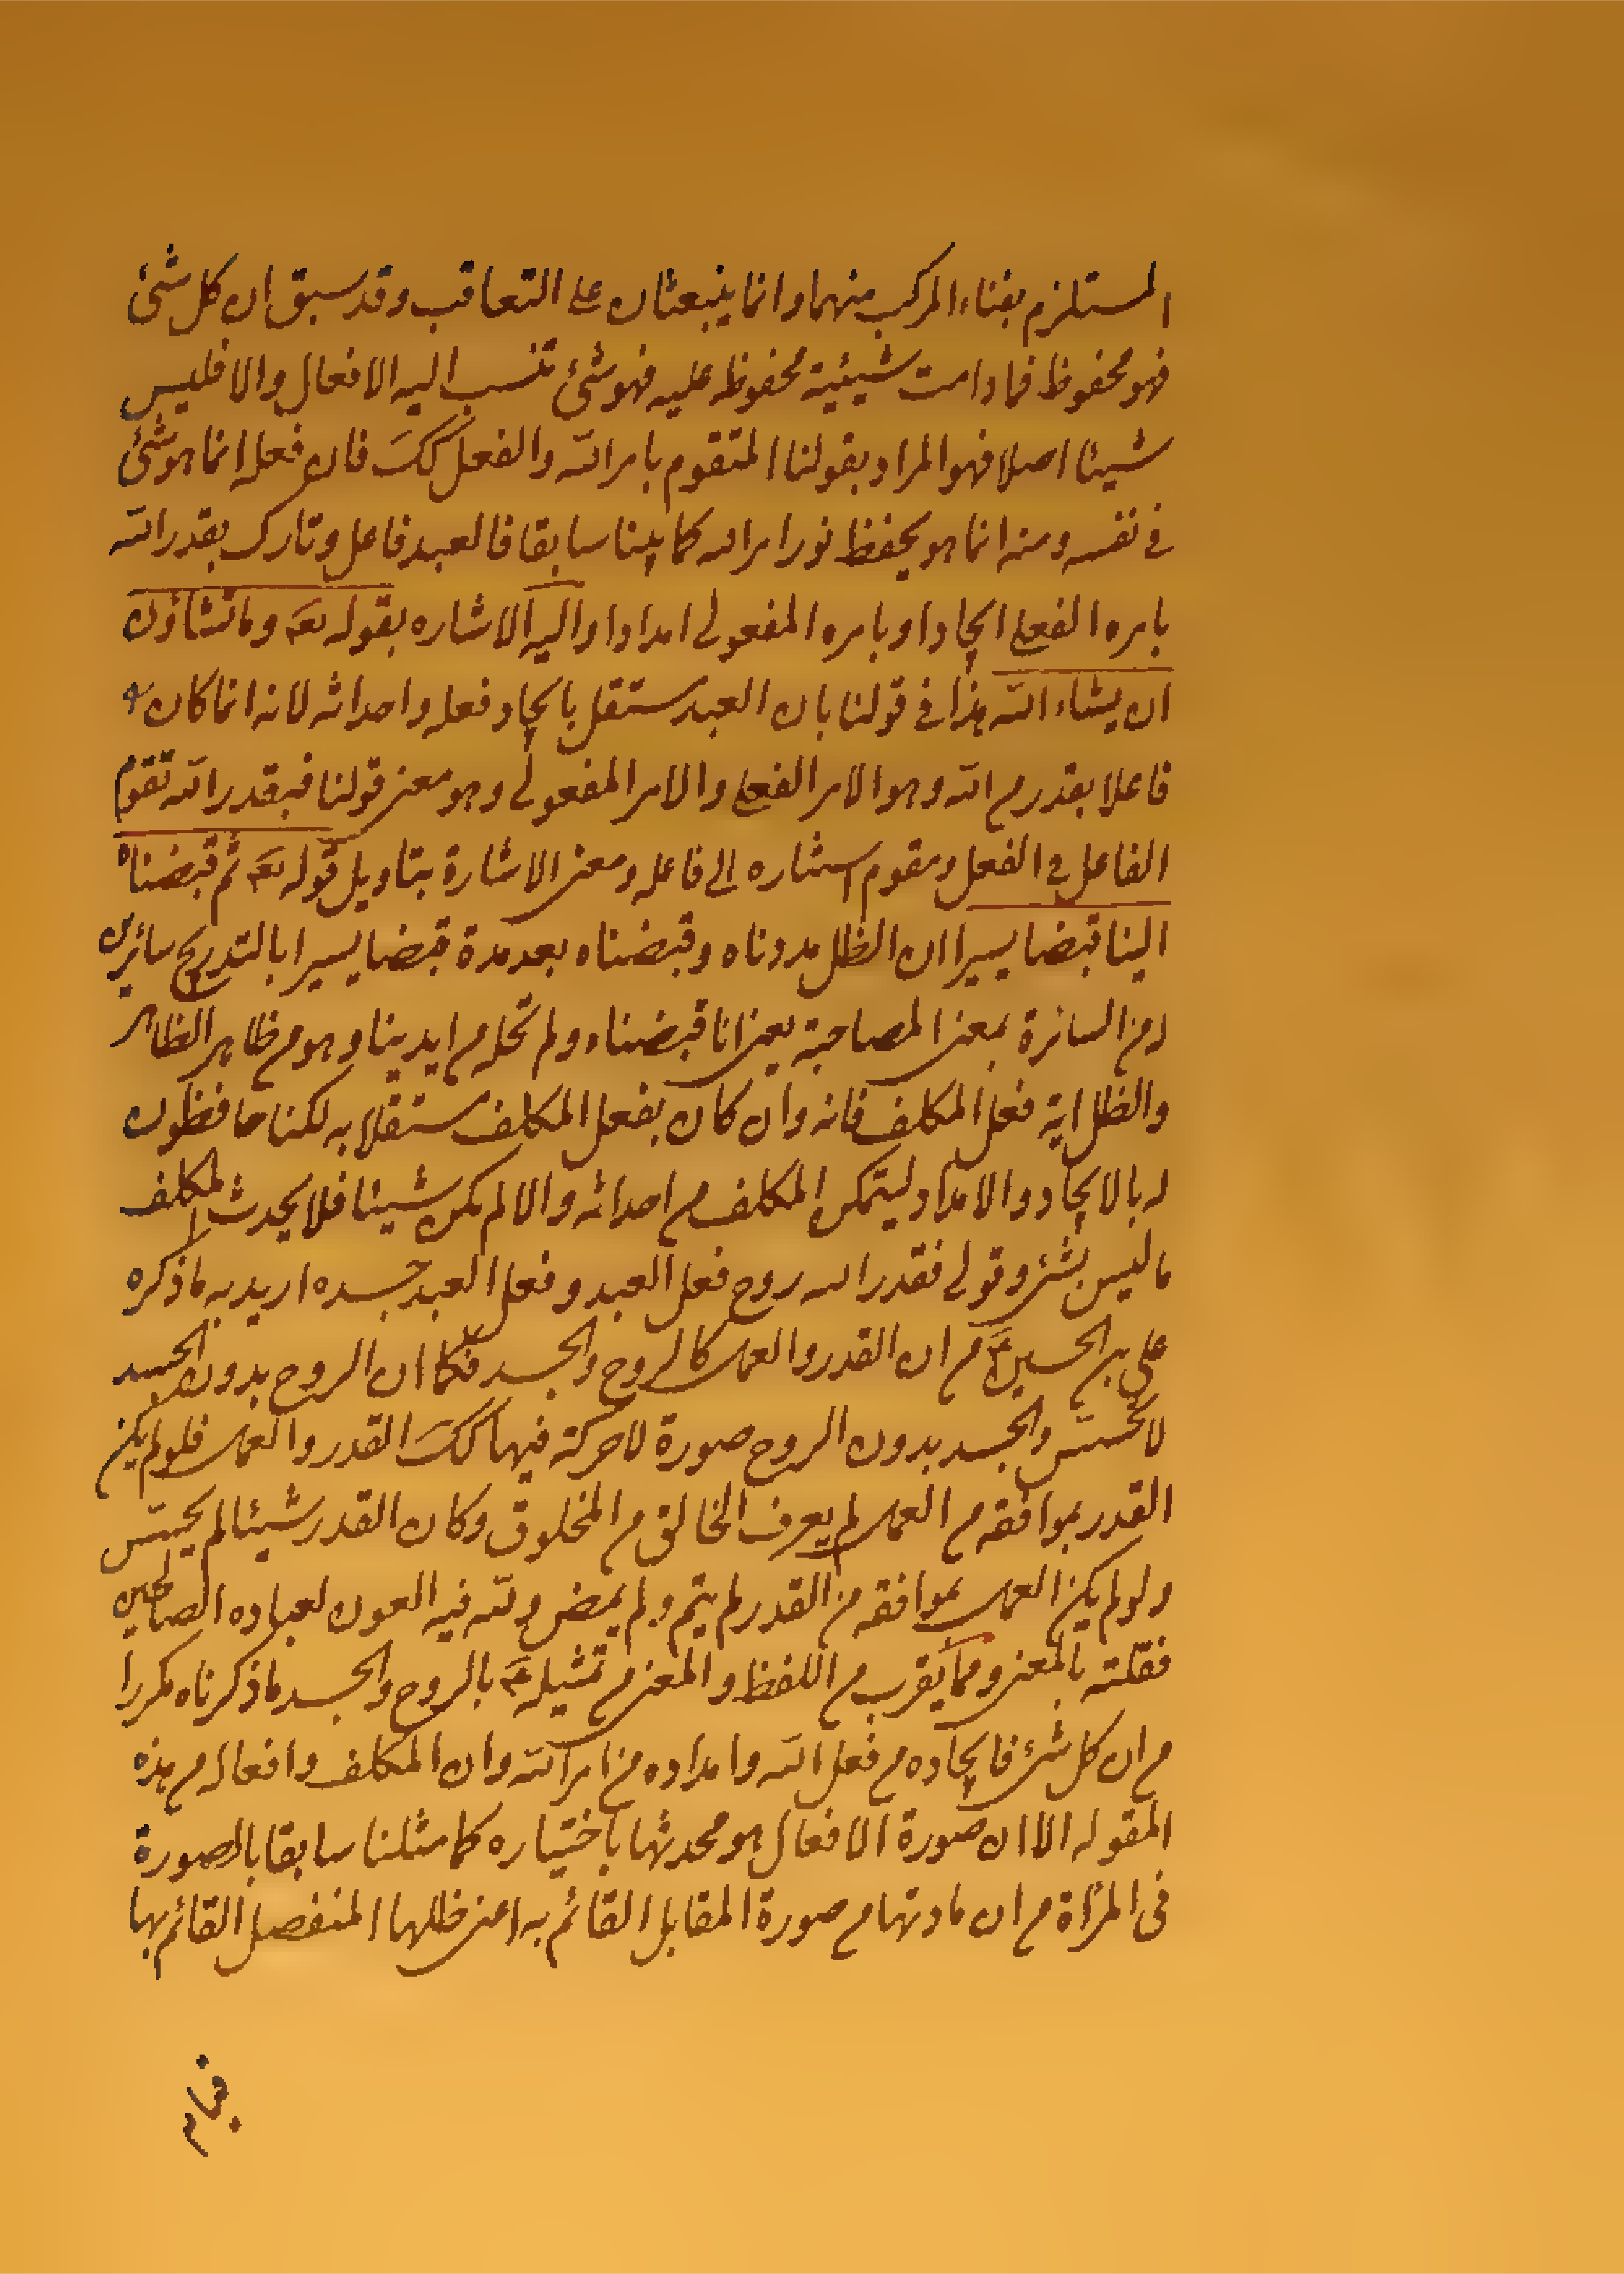 المستلزم بفناء المركب منهما وانما ينبعثان على التعاقب وقد سبق ان كل شئ
فهو محفوظ فما دامت شيئية محفوظه عليه فهو شئ تنسب اليه الافعال والا فليس
شيئا اصلا فهو المراد بقولنا المتقوم بامر الله والفعل كك فان فعله انما هو شئ
فى نفسه ومنه انما هو بحفظ نور امر الله كما بينا سابقا فالعبد فاعل وتارك بقدر الله
بامره الفعلى ايجادا وبامره المفعولى امدادا واليه الاشاره بقوله تعه وما تشاؤن
ان يشاء الله هذا فى قولنا بان العبد مستقل بايجاد فعله واحداثه لانه انما كان
فاعلا بقدر م الله وهو الامر الفعلى والامر المفعولى وهو معنى قولنا فبقدر الله تقوم
الفاعل فى الفعل وبقوم استناره الى فاعله ومعنى الاشارة بتاويل قوله تعه ثم قبضناه
الينا قبضا يسيرا ان الظل مددناه وقبضناه بعد مدة قبضا يسيرا بالتدريج سائرين
من السائرة بمعنى المصاحبة يعنى انا قبضناه ولم تحله م ايدينا وهو م ظاهر الظاهر
والظل اية فعل المكلف فانه وان كان بفعل المكلف مستقلا به لكنا حافظون
له بالايجاد والامداد ليتمكن المكلف م احداثه والا لم يكن شيئا فلا يحدث المكلف
ما ليس بشئ وقولى فقدر الله روح فعل العبد وفعل العبد جسده اريد به ما ذكره
على بن الحسين ع م ان القدر والعمل كالروح والجسد فكما ان الروح بدون الجسد
لا تحس والجسد بدون الروح صورة لا حركة فيها كك القدر والعمل فلو لم يكن
القدر بموافقه م العمل لم يعرف الخالق م المخلوق وكان القدر شيئا لم يحس
ولو لم يكن العمل بموافقه من القدر لم يتم ولم يمض ولله فيه العون لعباده الصالحين
فقلته بالمعنى ومما يقرب م اللفظ والمعنى م تمثيله ع بالروح والجسد ما ذكرناه مكررا
م ان كل شئ فايجاده م فعل الله وامداده من امر الله وان المكلف وافعاله م هذه
المقوله الا ان صورة الافعال هو محدثها باختياره كما مثلنا سابقا بالصورة
فى المرآة م ان مادتها م صورة المقابل القائم به اعنى ظلها المنفصل القائم بها